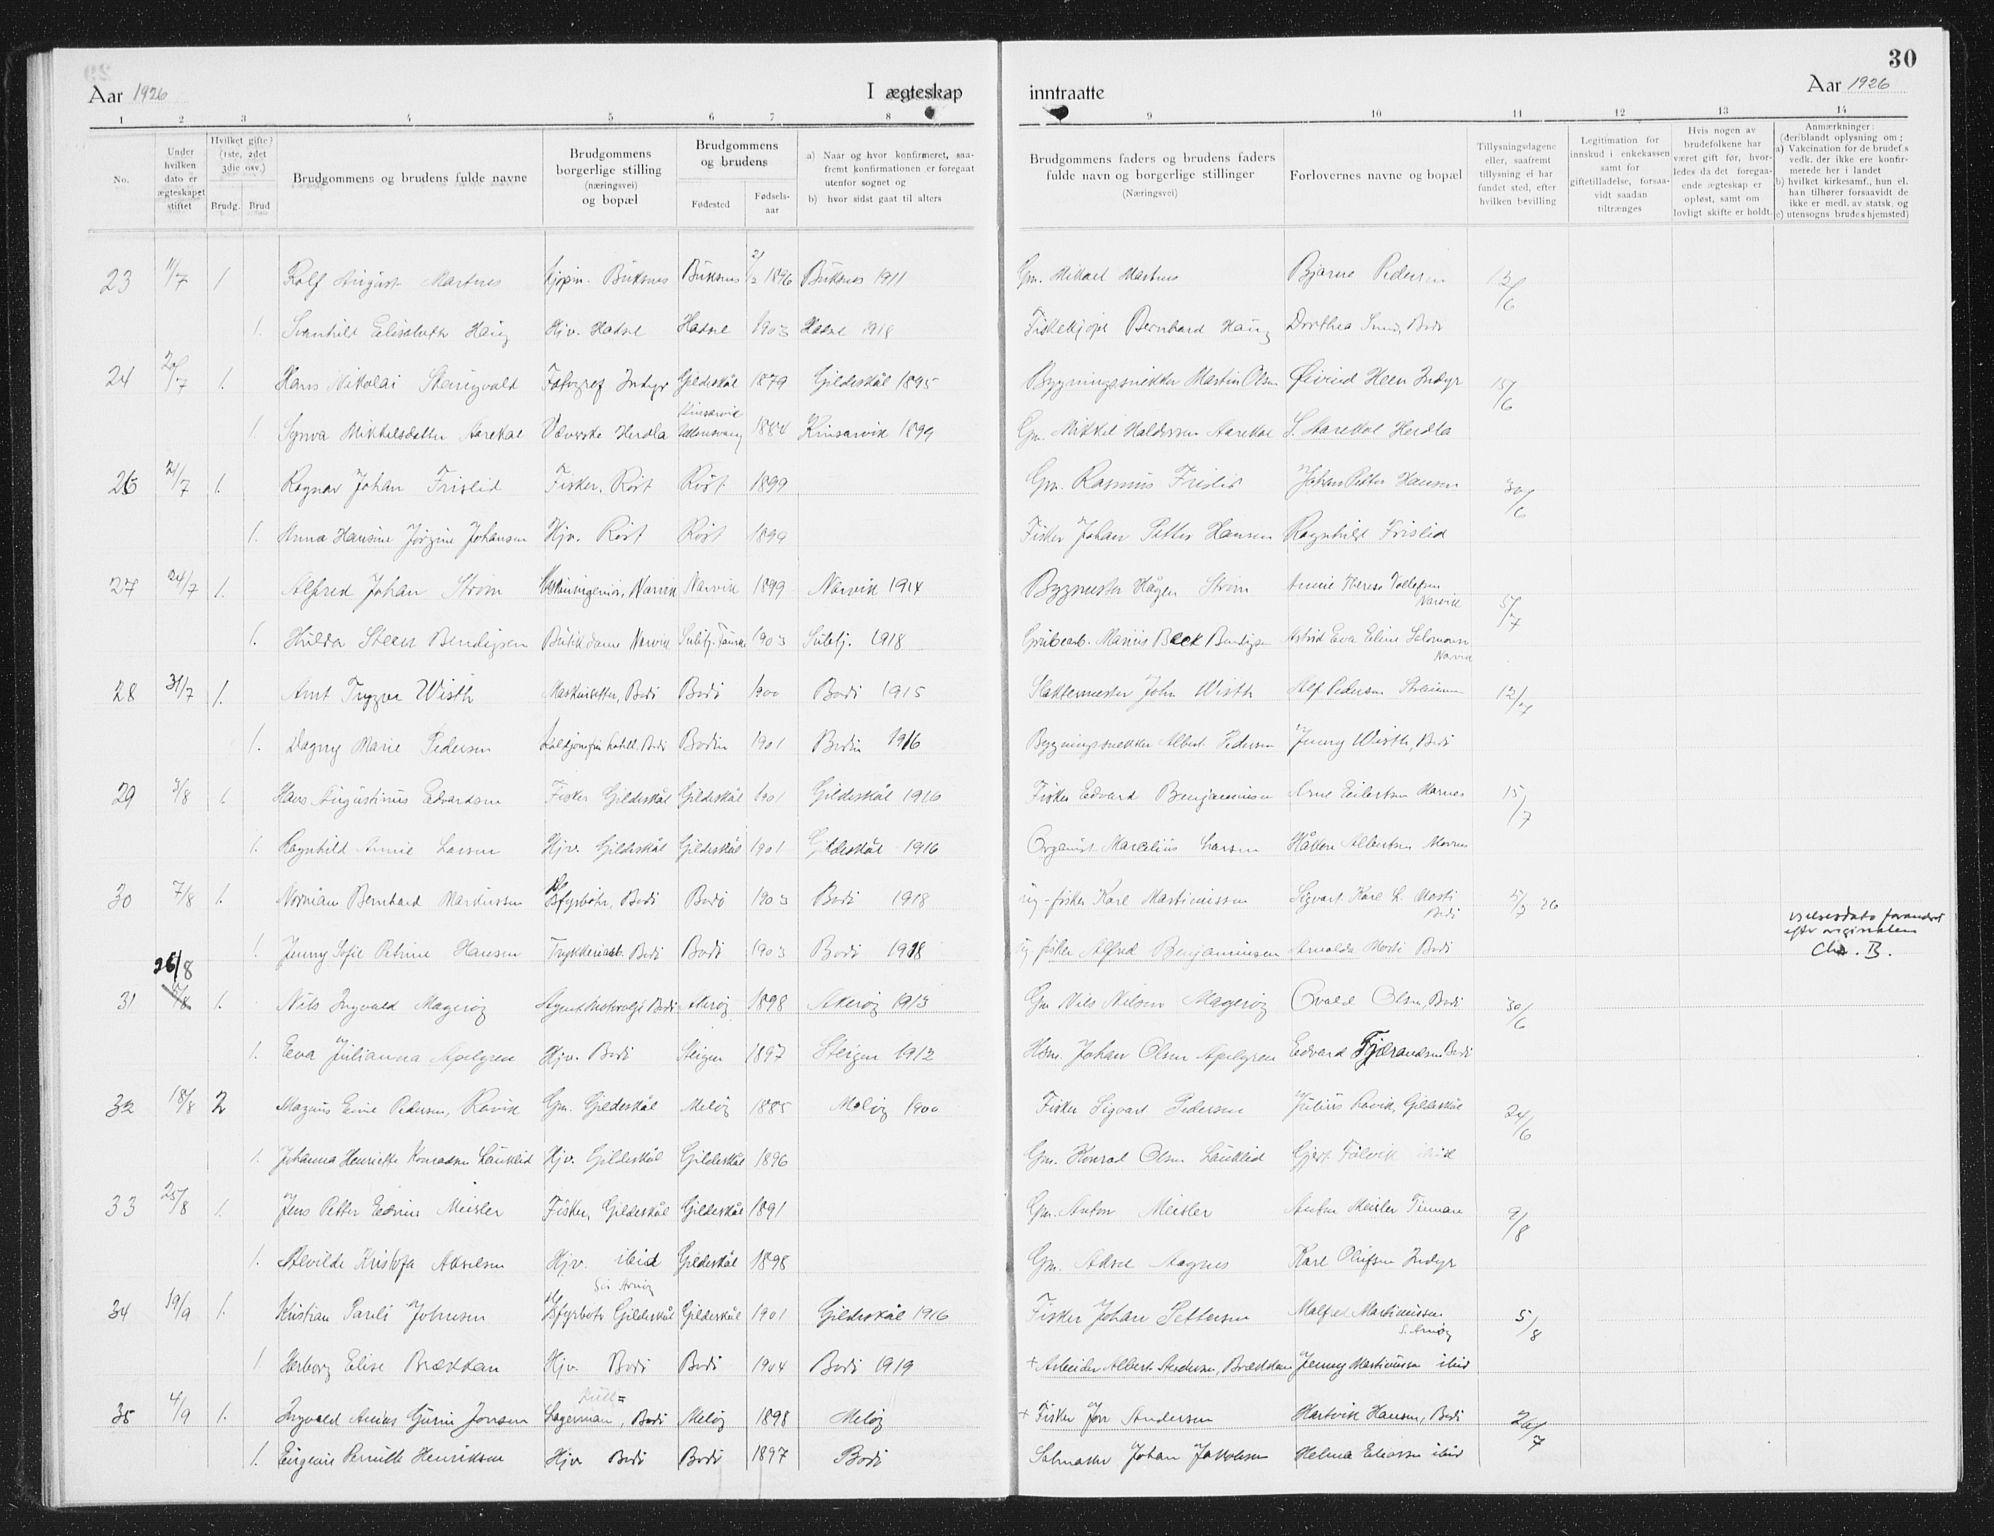 30
Aar 1926 I ægteskap inntraatte Aar 1926
1 2 3 4 5 6 7 8 9 10 11 12 13 14
No.
Under hvilken dato er ægteskapet stiftet
Hvilket gifte? (1ste, 2det 3die osv.)
Brudg. Brud
Brudgommens og brudens fulde navne
Brudgommens borgerlige stilling (næringsvei) og bopæl
Brudgommens og brudens
Fødested Fødsels-aar
a) Naar og hvor konfirmeret, saafremt konfirmationen er foregaat utenfor sognet og
b) hvor sidst gaat til alters
Brudgommens faders og brudens faders fulde navn og borgerlige stillinger (Næringsvei)
Forlovernes navne og bopæl
Tillysningsdagene eller, saafremt tillysning ei har fundet sted, efter hvilken bevilling
Legitimation for innskud i enkekassen samt for giftetilladelse, forsaavidt saadan tiltrænges
Hvis nogen av brudefolkene har været gift før, hvorledes da det foregaaende ægteskap er opløst, samt om lovligt skifte er holdt.
Anmærkninger: (deriblandt oplysning om: a) Vakcination for de brudef.s vedk. der ikke ere konfirmerede her i landet b) hvilket kirkesamf., hun el. han tilhører forsaavidt de ikke er medl. av statsk. og c) utensogns brudes hjemsted)
23 11/7 1. Rolf August Martnes Kjøpm. Buksnes Buksnes 2/2 1896 Buksnes 1911 Gm. Mikael Martnes Bjarne Pedersen 12/6
1. Svanhild Elisabeth Haug Hjv. Hadsel Hadsel 1903 Hadsel 1918 Fiskekjøper Bernhard Haug Dorthea Bodø
24 20/7 1. Hans Nikolai Fotograf Indyr Gildeskål 1879 Gildeskål 1895 Bygningssnekker Martin Olsen Øivind Heen Indyr 15/6
1. Synva Mikkelsdatter Aarekol Væverske Herdla Kinsarvik Ullensvang 1884 Kinsarvik 1899 Gm. Mikkel Aarekol S. Aarekol Herdla
26 21/7 1. Ragnar Johan Frislid Fisker, Røst Røst 1899 Gm. Rasmus Frislid Johan Petter Hansen 30/6
1. Anna Hansine Jørgine Johansen Hjv. Røst Røst 1899 Fisker Johan Petter Hansen Ragnhild Frislid
27 24/7 1. Alfred Johan Strøm Narvik Narvik 1899 Narvik 1914 Bygmester Hågen Strøm Annie Therese Tollefsen Narvik 5/7
1. Hulda Steen Bendigsen Butikdame Narvik 1903 Sulitj. 1918 Grubearb. Marius Beck Bendigsen Astrid Eva Eline Salomonsen Narvik
28 31/7 1. Arnt Trygve Wisth Maskinsetter, Bodø Bodø 1900 Bodø 1915 Slaktermester John Wisth Alf Pedersen 12/7
1. Dagny Marie Pedersen Bodin 1901 Bodin 1916 Bygningssnekker Albert Pedersen Jenny Wisth, Bodø
29 3/8 1 Hans Augustinus Edvardsen Fisker Gildeskål Gildeskål 1901 Gildeskål 1916 Fisker Edvard Benjaminsen Arne Eilertsen 15/7
1. Ragnhild Annie Larsen Hjv. Gildeskål Gildeskål 1901 Gildeskål 1916 Organist Marcelius Larsen Håkon Albertsen
30 7/8 1. Norman Bernhard Martinussen Bodø Bodø 1903 Bodø 1918 fisker Karl Martinussen Sigvart Karl L. Bodø 5/7 26
1. Jenny Sofie Petrine Hansen Bodø Bodø 1903 Bodø 1918 fisker Alfred Benjaminsen Arnolda Bodø
26/8
31 7/8 1. Nils Ingvald Magerøy Bodø Akerøy 1898 Akerøy 1913 Gm Nils Nilsen Magerøy Osvald Olsen, Bodø 30/6 efter originalen Chr. B.
1. Eva Julianna Apelgren Hjv. Bodø Steigen 1897 Steigen 1912 Hsm. Johan Olsen Apelgren Edvard Fjærandsen Bodø
32 18/8 2 Magnus Emil Pedersen, Ravik Gm. Gildeskål Meløy 1885 Meløy 1900 Fisker Sigvart Pedersen Julius Ravik, Gildeskål 24/6
1. Johanna Henriette Konradsen Lauklid Hjv. Gildeskål Gildeskål 1896 Gm. Konrad Olsen Lauklid Gjert Følvik ibid
33 25/8 1. Jens Petter Edvin Meisler Fisker, Gildeskål Gildeskål 1891 Gm. Anton Meisler Anton Meisler 9/8
1. Alvilde Kristofa Akselsen Hjv. ibid Gildeskål 1898 Gm. Aksel Aagnes Karl Olufsen Indyr
34 19/9 1. Kristian Pareli Johnsen Gildeskål Gildeskål 1901 Gildeskål 1916 Fisker Johan Pettersen Martinussen S. Arnøy 5/8
1. Herborg Elise Brækkan Hjv. Bodø Bodø 1904 Bodø 1919 + Arbeider Albert Andersen, Brækkan Jenny Martinussen ibid
35 4/9 1. Ingvald Guino Jonsen Lagermann, Bodø Meløy 1898 Meløy + Fisker Jon Andersen Hartvik Hansen, Bodø 26/7
1. Eugenie Pernille Henriksen Hjv Bodø Bodø 1897 Bodø Johan Jakobsen Helma ibid